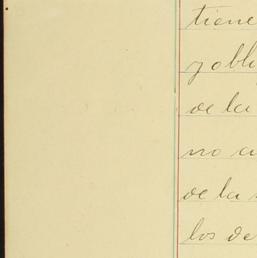 tiene
y obli
de la
no a
de la
los de